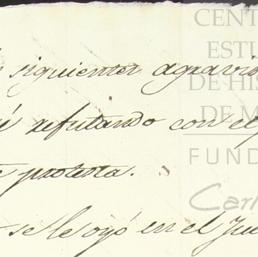 siguientes agravios
refutando con el
protesta.
se le oyó en el Juz
CENT
ESTU
DE HIS
DE M
FUND
Carl